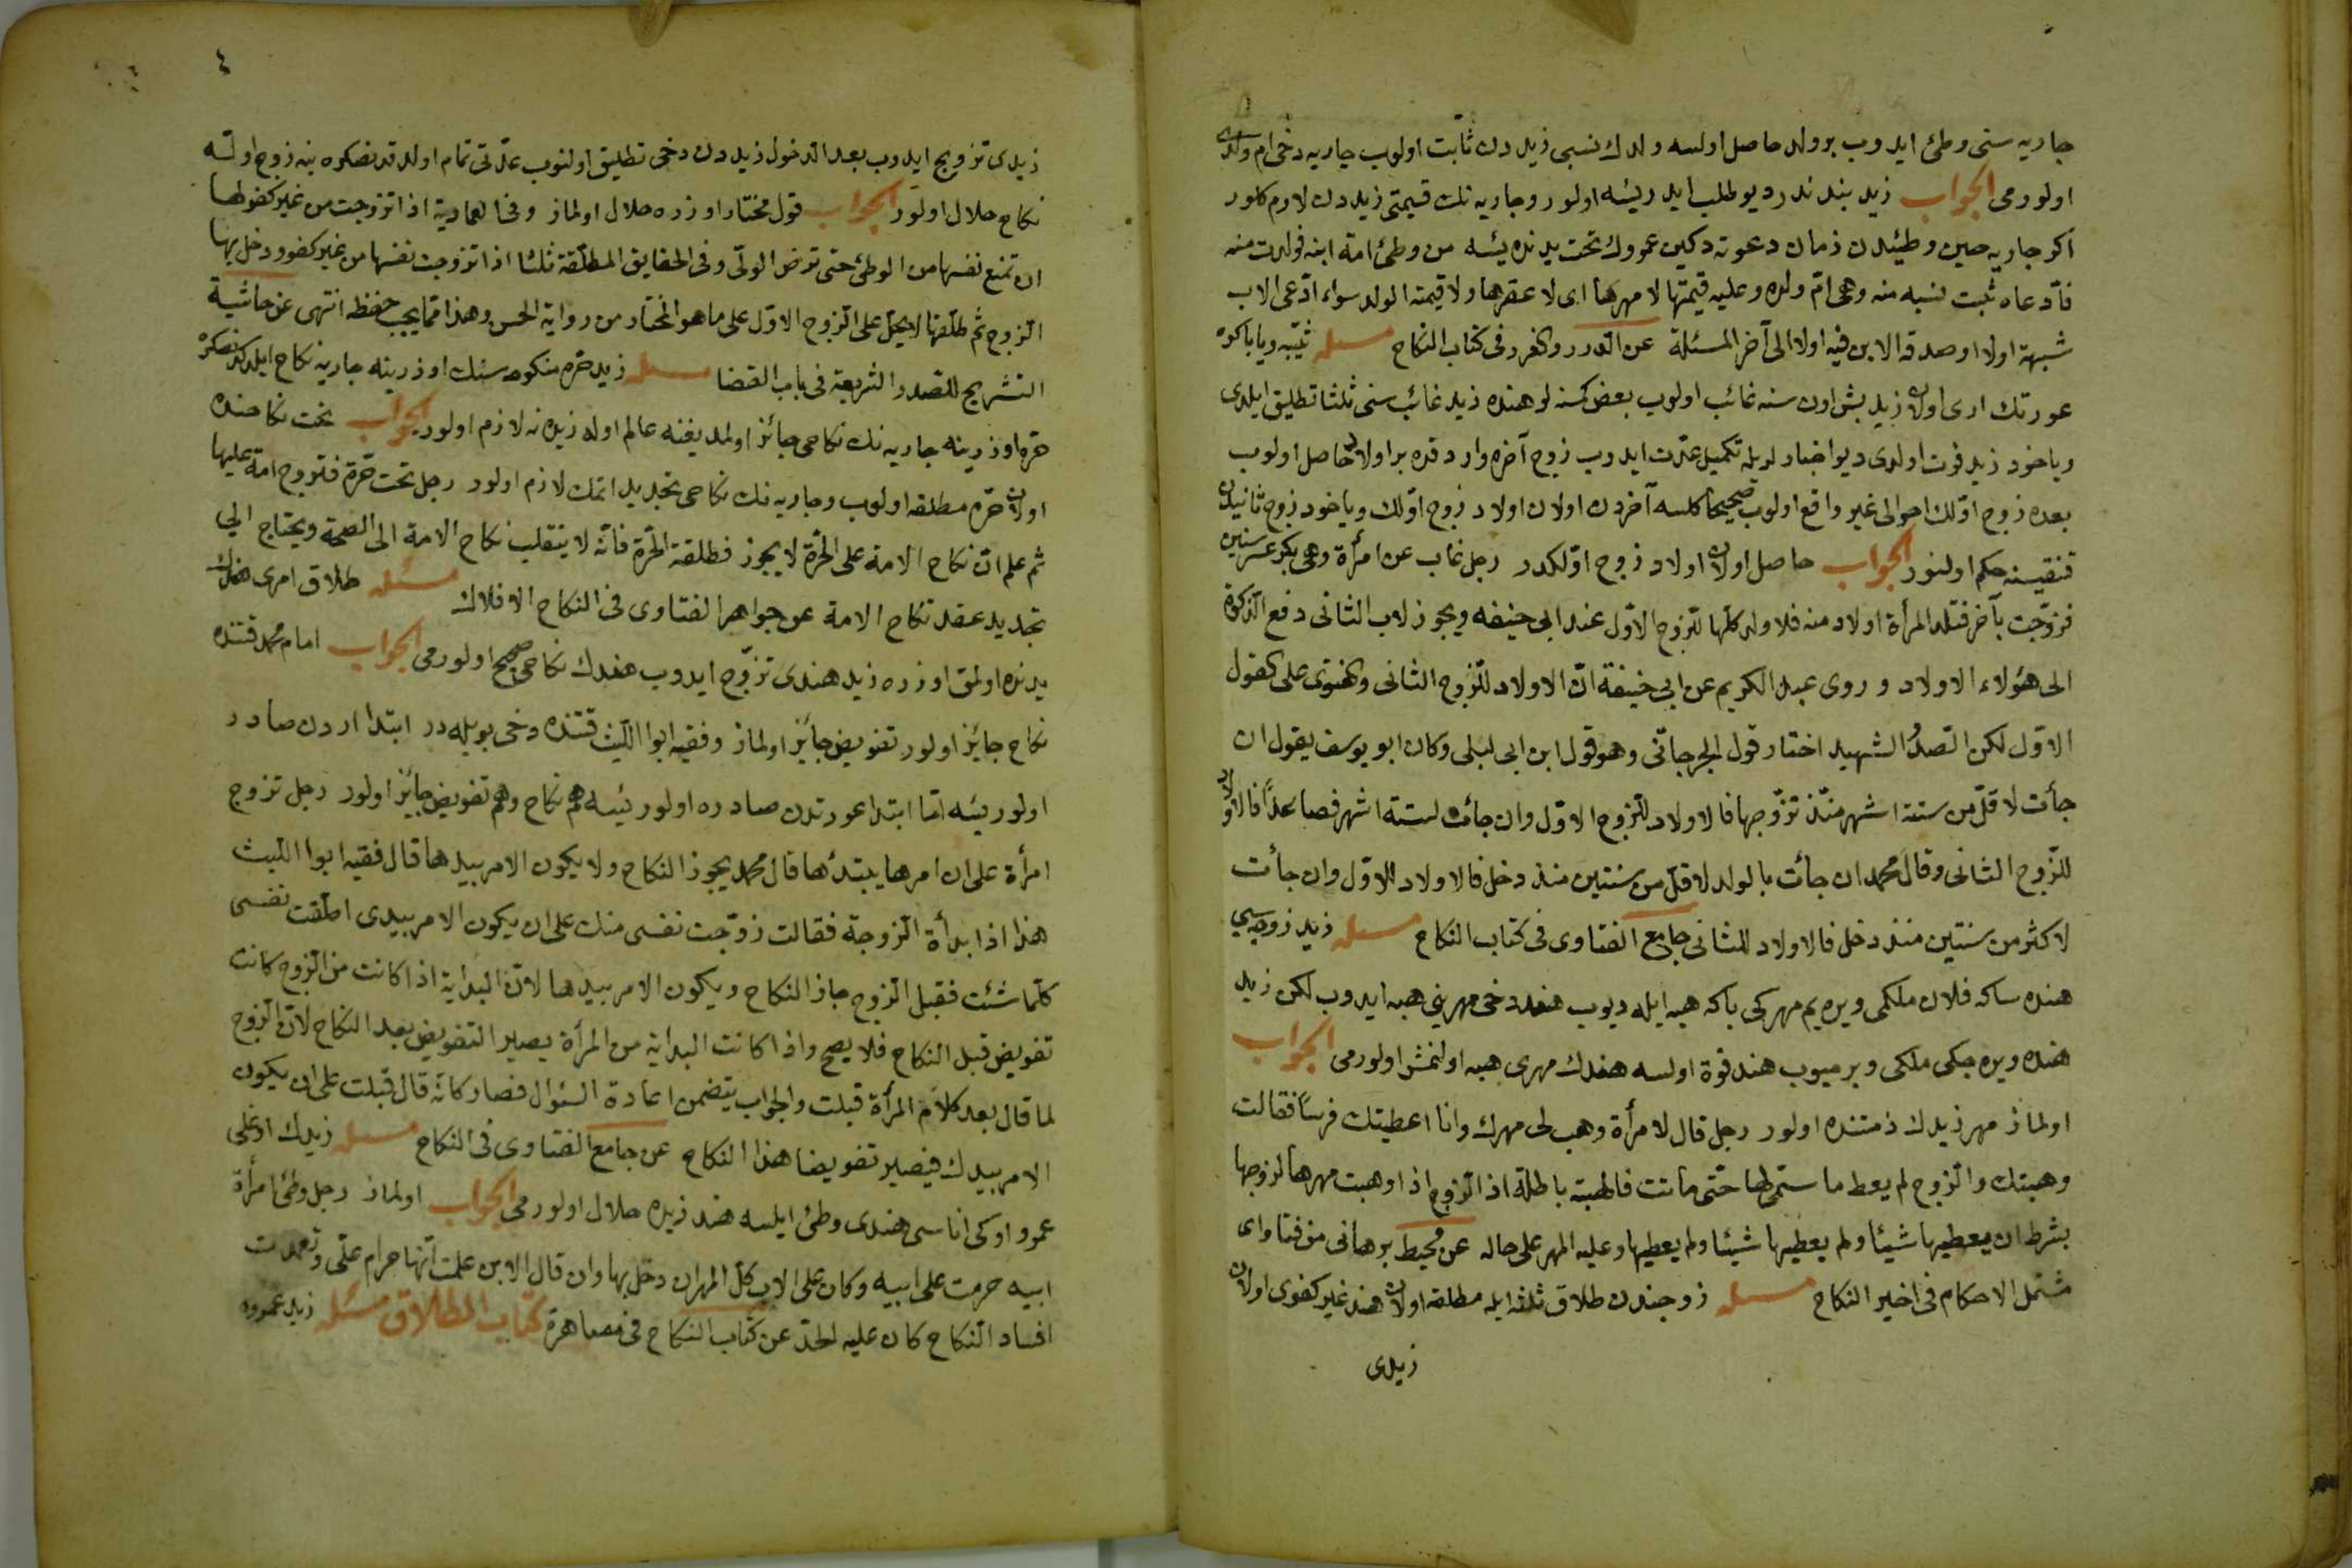 جاریه سنی وطئ ایدوب بر ولد حاصل اولسه ولدك نسبی زیددن ثابت اولوب جاریه دخی ام ولدی
اولورمی الجواب زید بندندر دیو طلب ایدر یئسه اولور و جاریه نك قیمتی زیددن لازم کلور
اکر جاریه حین وطئیدن زمان دعوته دکین عمروك تحت یدنده یئسه من وطئ امة ابنه فولدت منه
فادّعاه ثبت نسبه منه وهی امّ ولده وعلیه قیمتها لا مهرها ای لا عقرها ولا قیمة الولد سواء ادّعی الاب
شبهة اولا او صدقه الابن فیه اولا الی آخر المسئلة عن الدرر والغرر فی کتاب النکاح مسئله ثیّبه ویا باکره
عورتك اری اولان زید بش اون سنه غائب اولوب بعض کسنه لر هنده زید غائب سنی ثلثا تطلیق ایلدی
ویاخود زید فوت اولدی دیو اخبار لریله تکمیل عدّت ایدوب زوج آخره واردقده بر اولاد حاصل اولوب
بعده زوج اوّلك احوالی غیر واقع اولوب صحیحا کلسه آخردن اولان اولاد زوج اوّلك ویاخود زوج ثانینك
قنقیسنه حکم اولنور الجواب حاصل اولان اولاد زوج اوّلکدر رجل غاب عن امرأة وهی بکر عشر سنین
فزوّجت بآخر فتلد المرأة اولاد منه فلاولد کلها للزوج الاوّل عند ابی حنیفه ویجوز لاب الثانی دفع الزکوة
الی هؤلاء الاولاد و روی عبد الکریم عن ابی حنیفة انّ الاولاد للزوج الثانی والفتوی علی القول
الاوّل لکن الصدرُ الشهید اختار قول الجرجانی وهو قول ابن ابی لیلی وکان ابو یوسف یقول ان
جأت لاقلّ من ستة اشهر منذ تزوّجها فالاولاد للزوج الاوّل وان جائت لستة اشهر فصاعداً فالاولاد
للزوج الثانی وقال محمد ان جأت بالولد لاقلّ من سنتین منذ دخل فالاولاد للاوّل وان جأت
لاکثر من سنتین منذ دخل فالاولاد للثانی جامع الفتاوی فی کتاب النکاح مسئله زید زوجه سی
هنده ساکه فلان ملکمی ویره یم مهرکی باکه هبه ایله دیوب هند دخی مهرینی هبه ایدوب لکن زید
هنده ویره جکی ملکی ویرمیوب هند فوة اولسه هندك مهری هبه اولنمش اولورمی الجواب
اولماز مهر زیدك ذمتنده اولور رجل قال لامرأة وهب لی مهرك وانا اعطیتك فرساً فقالت
وهبتك والزوج لم یعط ما سمّی لها حتّی ماتت فالهبة باطلة اذ الزوج اذا وهبت مهرها لزوجها
بشرط ان یعطیها شیئا ولم یعطیها شیئا ولم یعطیها وعلیه المهر علی حاله عن محیط برهانی من فتاوای
مشتمل الاحکام فی اخیر النکاح مسئله زوجندن طلاق ثلثه ایله مطلقه اولان هند غیر کفوی اولان
زیدی
٤
زیدی تزویج ایدوب بعد الدخول زیددن دخی تطلیق اولنوب عدّتی تمام اولدقدنصکره ینه زوج اوّلسه
نکاح حلال اولور الجواب قول مختار اوزره حلال اولماز وفی العمادیة اذا تزوجت من غیر کفو لها
ان تمنع نفسها من الوطئ حتی ترض الولّی وفی الحقایق المطلّقة ثلثا اذا تزوجت نفسها من غیر کفو ودخل بها
الزوج ثم طلّقها لا یحلّ علی الزوج الاوّل علی ما هو المختار من روایة الحسن وهذا ممّا یجب حفظه انتهی عن حاشیة
التشریح للصدر الشریعة فی باب القضا مسئله زید حرّه منکوحه سنك اوزرینه جاریه نکاح ایلدکدنصکره
حرّه اوزرینه جاریه نك نکاحی جائز اولمدیغنه عالم اولد زیده نه لازم اولور الجواب تحت نکاحنده
اولان حرّه مطلقه اولوب وجاریه نك نکاحی تجدید اتمك لازم اولور رجل تحت حرّة فتزوج امة علیها
ثم علم انّ نکاح الامة علی الحرّة لا یجوز فطلقة الحرّة فانّه لا ینقلب نکاح الامة الی الصحة ویحتاج الی
تجدید عقد نکاح الامة عن جواهر الفتاوی فی النکاح الافلاك مسئله طلاق امری هندك
یدنده اولمق اوزره زید هندی تزوّج ایدوب هندك نکاحی صحیح اولورمی الجواب امام محمد قتنده
نکاح جایز اولور تفویض جایز اولماز وفقیه ابوا اللّیث قتنده دخی بویله در ابتدا اردن صادر
اولور یئسه امّا ابتدا عورتدن صادره اولور یئسه هم نکاح وهم تفویض جایز اولور رجل تزوج
امرأة علی ان امرها یبتدأها قال محمد یجوز النکاح ولا یکون الامر بیدها قال فقیه ابوا اللّیث
هذا اذا بدأة الزوجة فقالت زوّجت نفسی منك علی ان یکون الامر بیدی اطلّقت نفسی
کلّما شئت فقبل الزوج جاز النکاح ویکون الامر بیدها لانّ البدایة اذا کانت من الزوج کانت
تفویض قبل النکاح فلا یصح واذا کانت البدایة من المرأة یصیر التفویض بعد النکاح لانّ الزوج
لما قال بعد کلام المرأة قبلت والجواب یتضمن اعادة السئوال فصار کانّه قال قبلت علی ان یکون
الامر بیدك فیصیر تفویضا هذا النکاح عن جامع الفتاوی فی النکاح مسئله زیدك اوغلی
عمرو اوکی اناسی هندی وطئ ایلسه هند زیده حلال اولورمی الجواب اولماز رجل وطئ امرأة
ابیه حرمت علی ابیه وکان علی الاب کلّ المهر ان دخل بها وان قال الابن علمت انّها حرام علّی وتعمدت
افساد النکاح کان علیه الحدّ عن کتاب النکاح فی مصاهرة کتاب الطلاق مسئله زید عمروه